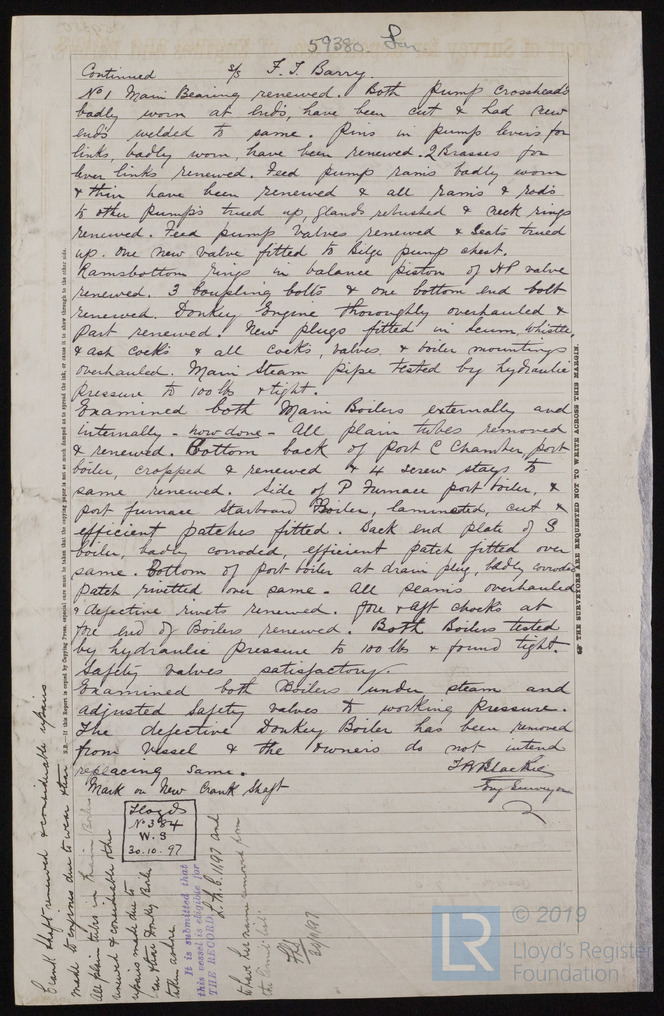 59380. Lon.
Continued s/s F. T. Barry.
No 1 Main Bearing renewed. Both pump crossheads
badly worn at ends, have been cut & had new
ends welded to same. Pins in pump levers for
links badly worn, have been renewed. 2 Brasses for
lever links renewed. Feed pump rams badly worn
& thin have been renewed & all rams & rods
to other pumps trued up, glands rebushed & neck rings
renewed. Feed pump Valves renewed & Seats trued
up. One new valve fitted to Bilge pump chest.
Ramsbottom rings in balance piston of HP valve
renewed. 3 Coupling bolts & one bottom end bolt
renewed. Donkey Engine thoroughly overhauled &
part renewed. New plugs fitted in Scum, Whistle,
& ash cocks & all cocks, valves & boiler mountings
overhauled. Main Steam pipe tested by hydraulic
pressure to 100 lbs & tight.
Examined both Main Boilers externally and
internally - now done - All plain tubes removed
& renewed. Bottom back of Port C Chamber, port
boiler, cropped & renewed & 4 screw stays to
same renewed. Side of P Furnace port boiler, &
port furnace Starboard Boiler, laminated, cut &
efficient patches fitted. Back end plate of S
boiler, badly corroded, efficient patch fitted over
same. Bottom of port boiler at drain plug, badly corroded
patch rivetted over same - All seams overhauled
& defective rivets renewed. Fore & aft chocks at
fore end of Boilers renewed. Both Boilers tested
by hydraulic pressure to 100 lbs & found tight.
Safety valves satisfactory.
Examined both Boilers under steam and
adjusted Safety valves to working pressure.
The defective Donkey Boiler has been removed
from Vessel & the owners do not intend
replacing same.
Mark on New Crank Shaft
Lloyds
No 384
W. S
30.10.97
Eng Surveyor
Crank shaft renewed & considerable repairs
made to engines due to wear
All plain tubes in Main Boilers
renewed & considerable other
repairs made due to
Donkey Boiler
taken ashore
It is submitted that
this vessel is eligible for
THE RECORD
and
to have her name removed from
N.B.—If this Report is copied by Copying Press, especial care must be taken that the copying paper is not so much damped as to spread the ink, or cause it to show through to the other side.
THE SURVEYORS ARE REQUESTED NOT TO WRITE ACROSS THIS MARGIN.
LR
© 2019
Lloyd's Register
Foundation